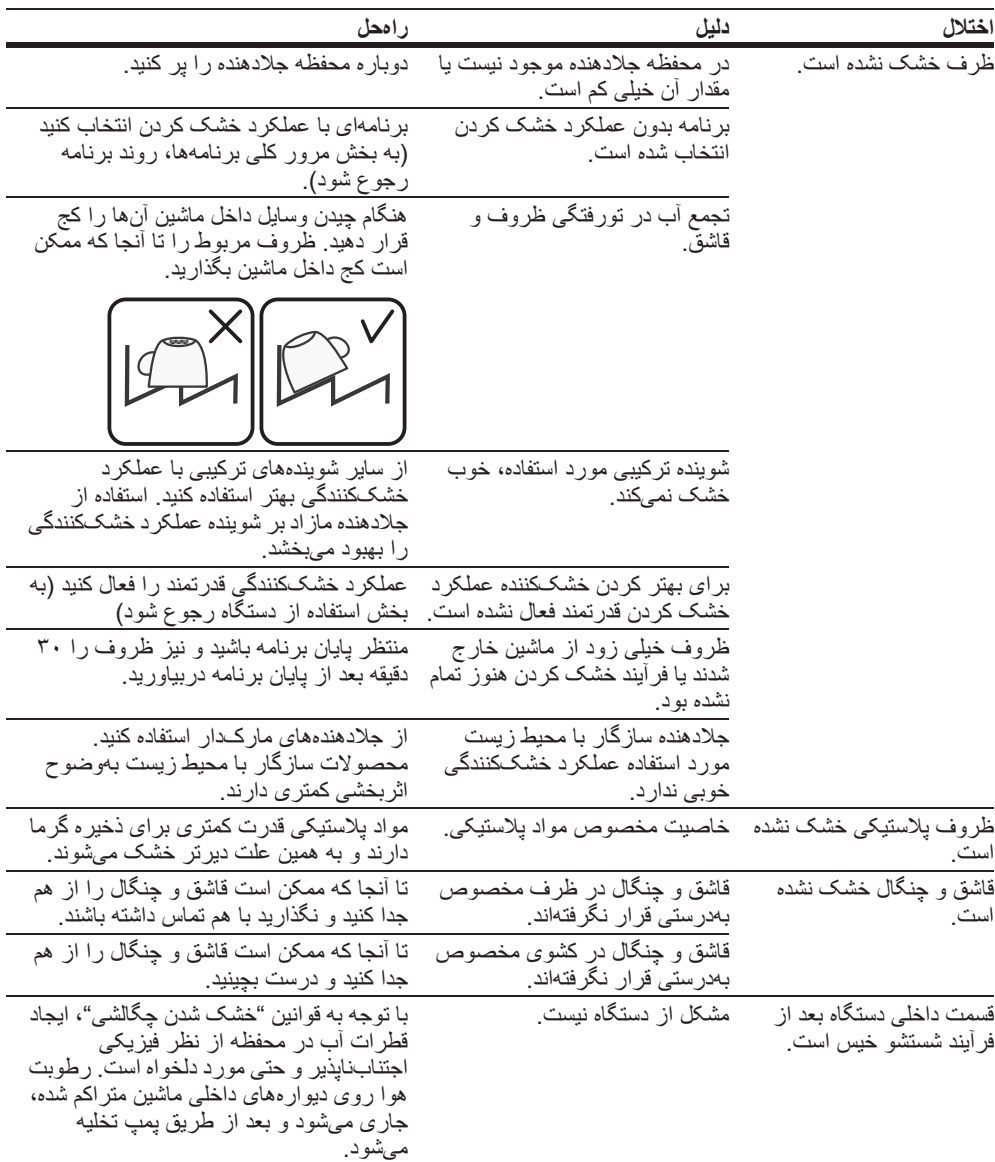 اختلال
دلیل
راه‌حل
ظرف خشک نشده است.
در محفظه جلادهنده موجود نیست یا
مقدار آن خیلی کم است.
دوباره محفظه جلادهنده را پر کنید.
برنامه بدون عملکرد خشک کردن
انتخاب شده است.
برنامه‌ای با عملکرد خشک کردن انتخاب کنید
(به بخش مرور کلی برنامه‌ها، روند برنامه
رجوع شود).
تجمع آب در تورفتگی ظروف و
قاشق.
هنگام چیدن وسایل داخل ماشین آن‌ها را کج
قرار دهید. ظروف مربوط را تا آنجا که ممکن
است کج داخل ماشین بگذارید.
شوینده ترکیبی مورد استفاده، خوب
خشک نمی‌کند.
از سایر شوینده‌های ترکیبی با عملکرد
خشک‌کنندگی بهتر استفاده کنید. استفاده از
جلادهنده مازاد بر شوینده عملکرد خشک‌کنندگی
را بهبود می‌بخشد.
برای بهتر کردن خشک‌کننده عملکرد
خشک کردن قدرتمند فعال نشده است.
عملکرد خشک‌کنندگی قدرتمند را فعال کنید (به
بخش استفاده از دستگاه رجوع شود)
ظروف خیلی زود از ماشین خارج
شدند یا فرآیند خشک کردن هنوز تمام
نشده بود.
منتظر پایان برنامه باشید و نیز ظروف را ۳۰
دقیقه بعد از پایان برنامه دربیاورید.
جلادهنده سازگار با محیط زیست
مورد استفاده عملکرد خشک‌کنندگی
خوبی ندارد.
از جلادهنده‌های مارک‌دار استفاده کنید.
محصولات سازگار با محیط زیست به‌وضوح
اثربخشی کمتری دارند.
ظروف پلاستیکی خشک نشده
است.
خاصیت مخصوص مواد پلاستیکی.
مواد پلاستیکی قدرت کمتری برای ذخیره گرما
دارند و به همین علت دیرتر خشک می‌شوند.
قاشق و چنگال خشک نشده
است.
قاشق و چنگال در ظرف مخصوص
به‌درستی قرار نگرفته‌اند.
تا آنجا که ممکن است قاشق و چنگال را از هم
جدا کنید و نگذارید با هم تماس داشته باشند.
قاشق و چنگال در کشوی مخصوص
به‌درستی قرار نگرفته‌اند.
تا آنجا که ممکن است قاشق و چنگال را از هم
جدا کنید و درست بچینید.
قسمت داخلی دستگاه بعد از
فرآیند شستشو خیس است.
مشکل از دستگاه نیست.
با توجه به قوانین “خشک شدن چگالشی”، ایجاد
قطرات آب در محفظه از نظر فیزیکی
اجتناب‌ناپذیر و حتی مورد دلخواه است. رطوبت
هوا روی دیواره‌های داخلی ماشین متراکم شده،
جاری می‌شود و بعد از طریق پمپ تخلیه
می‌شود.